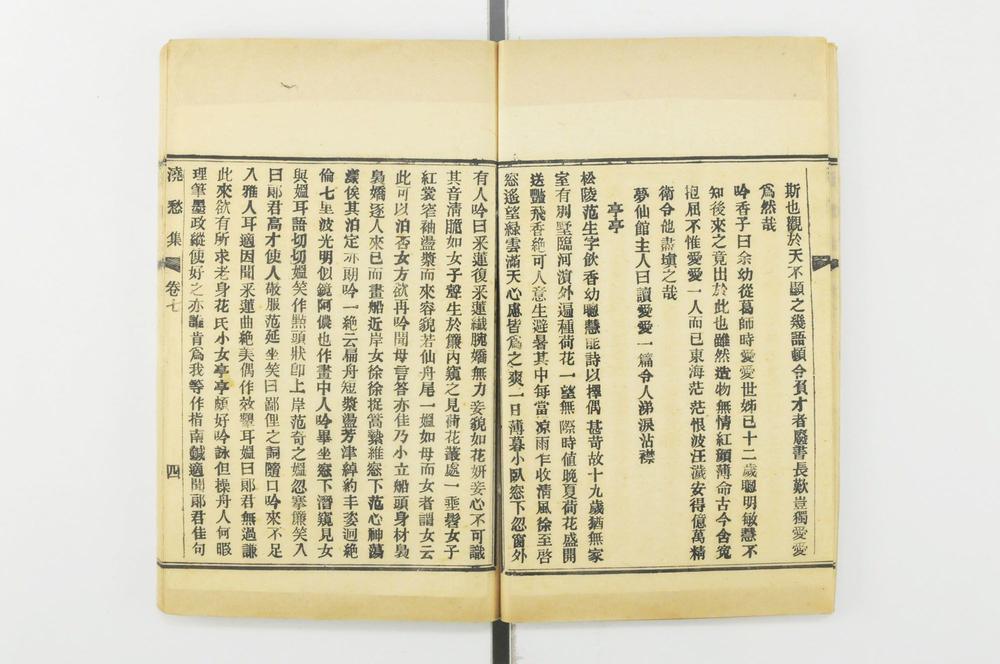 斯也觀於天不顯之幾語頓令負才者廢書長歎豈獨愛愛
爲然哉
吟香子曰余幼從葛師時愛愛世姊已十二歲聰明敏慧不
知後來之竟出於此也雖然造物無情紅顏薄命古今含寃
抱屈不惟愛愛一人而已東海茫茫恨波汪濊安得億萬精
衛令他盡塡之哉
夢仙館主人曰讀愛愛一篇令人涕淚沾襟
亭亭
松陵范生字飲香幼聰慧能詩以擇偶甚苛故十九歲猶無家
室有別墅臨河濱外遍種荷花一望無際時値晚夏荷花盛開
送豔飛香絶可人意生避暑其中每當凉雨乍收淸風徐至啓
窓遙望綠雲滿天心慮皆爲之爽一日薄暮小臥窓下忽窗外
有人吟曰釆蓮復釆蓮纖腕嬌無力妾貌如花妍妾心不可識
其音淸脆如女子聲生於簾內窺之見荷花叢處一垂髫女子
紅裳窄袖盪槳而來容貌若仙舟尾一媼如母而女者謂女云
此可以泊否女方欲再吟聞母言答亦佳乃小立船頭身材裊
裊嬌逐人來已而畫船近岸女徐徐捉篙縶維窓下范心神蕩
漾俟其泊定亦朗吟一絶云扁舟短槳盪芳津綽約丰姿迥絶
倫七里波光明似鏡阿儂也作畫中人吟畢坐窓下潛窺見女
與媼耳語切切媼笑作點頭狀卽上岸范奇之媼忽搴簾笑入
曰郞君高才使人敬服范延坐笑曰鄙俚之詞隨口吟來不足
入雅人耳適因聞釆蓮曲絶美偶作效顰耳媼曰郞君無過謙
此來欲有所求老身花氏小女亭亭頗好吟詠但操舟人何暇
理筆墨政縱使好之亦誰肯爲我等作指南鍼適聞郞君佳句
澆愁集
卷七
四